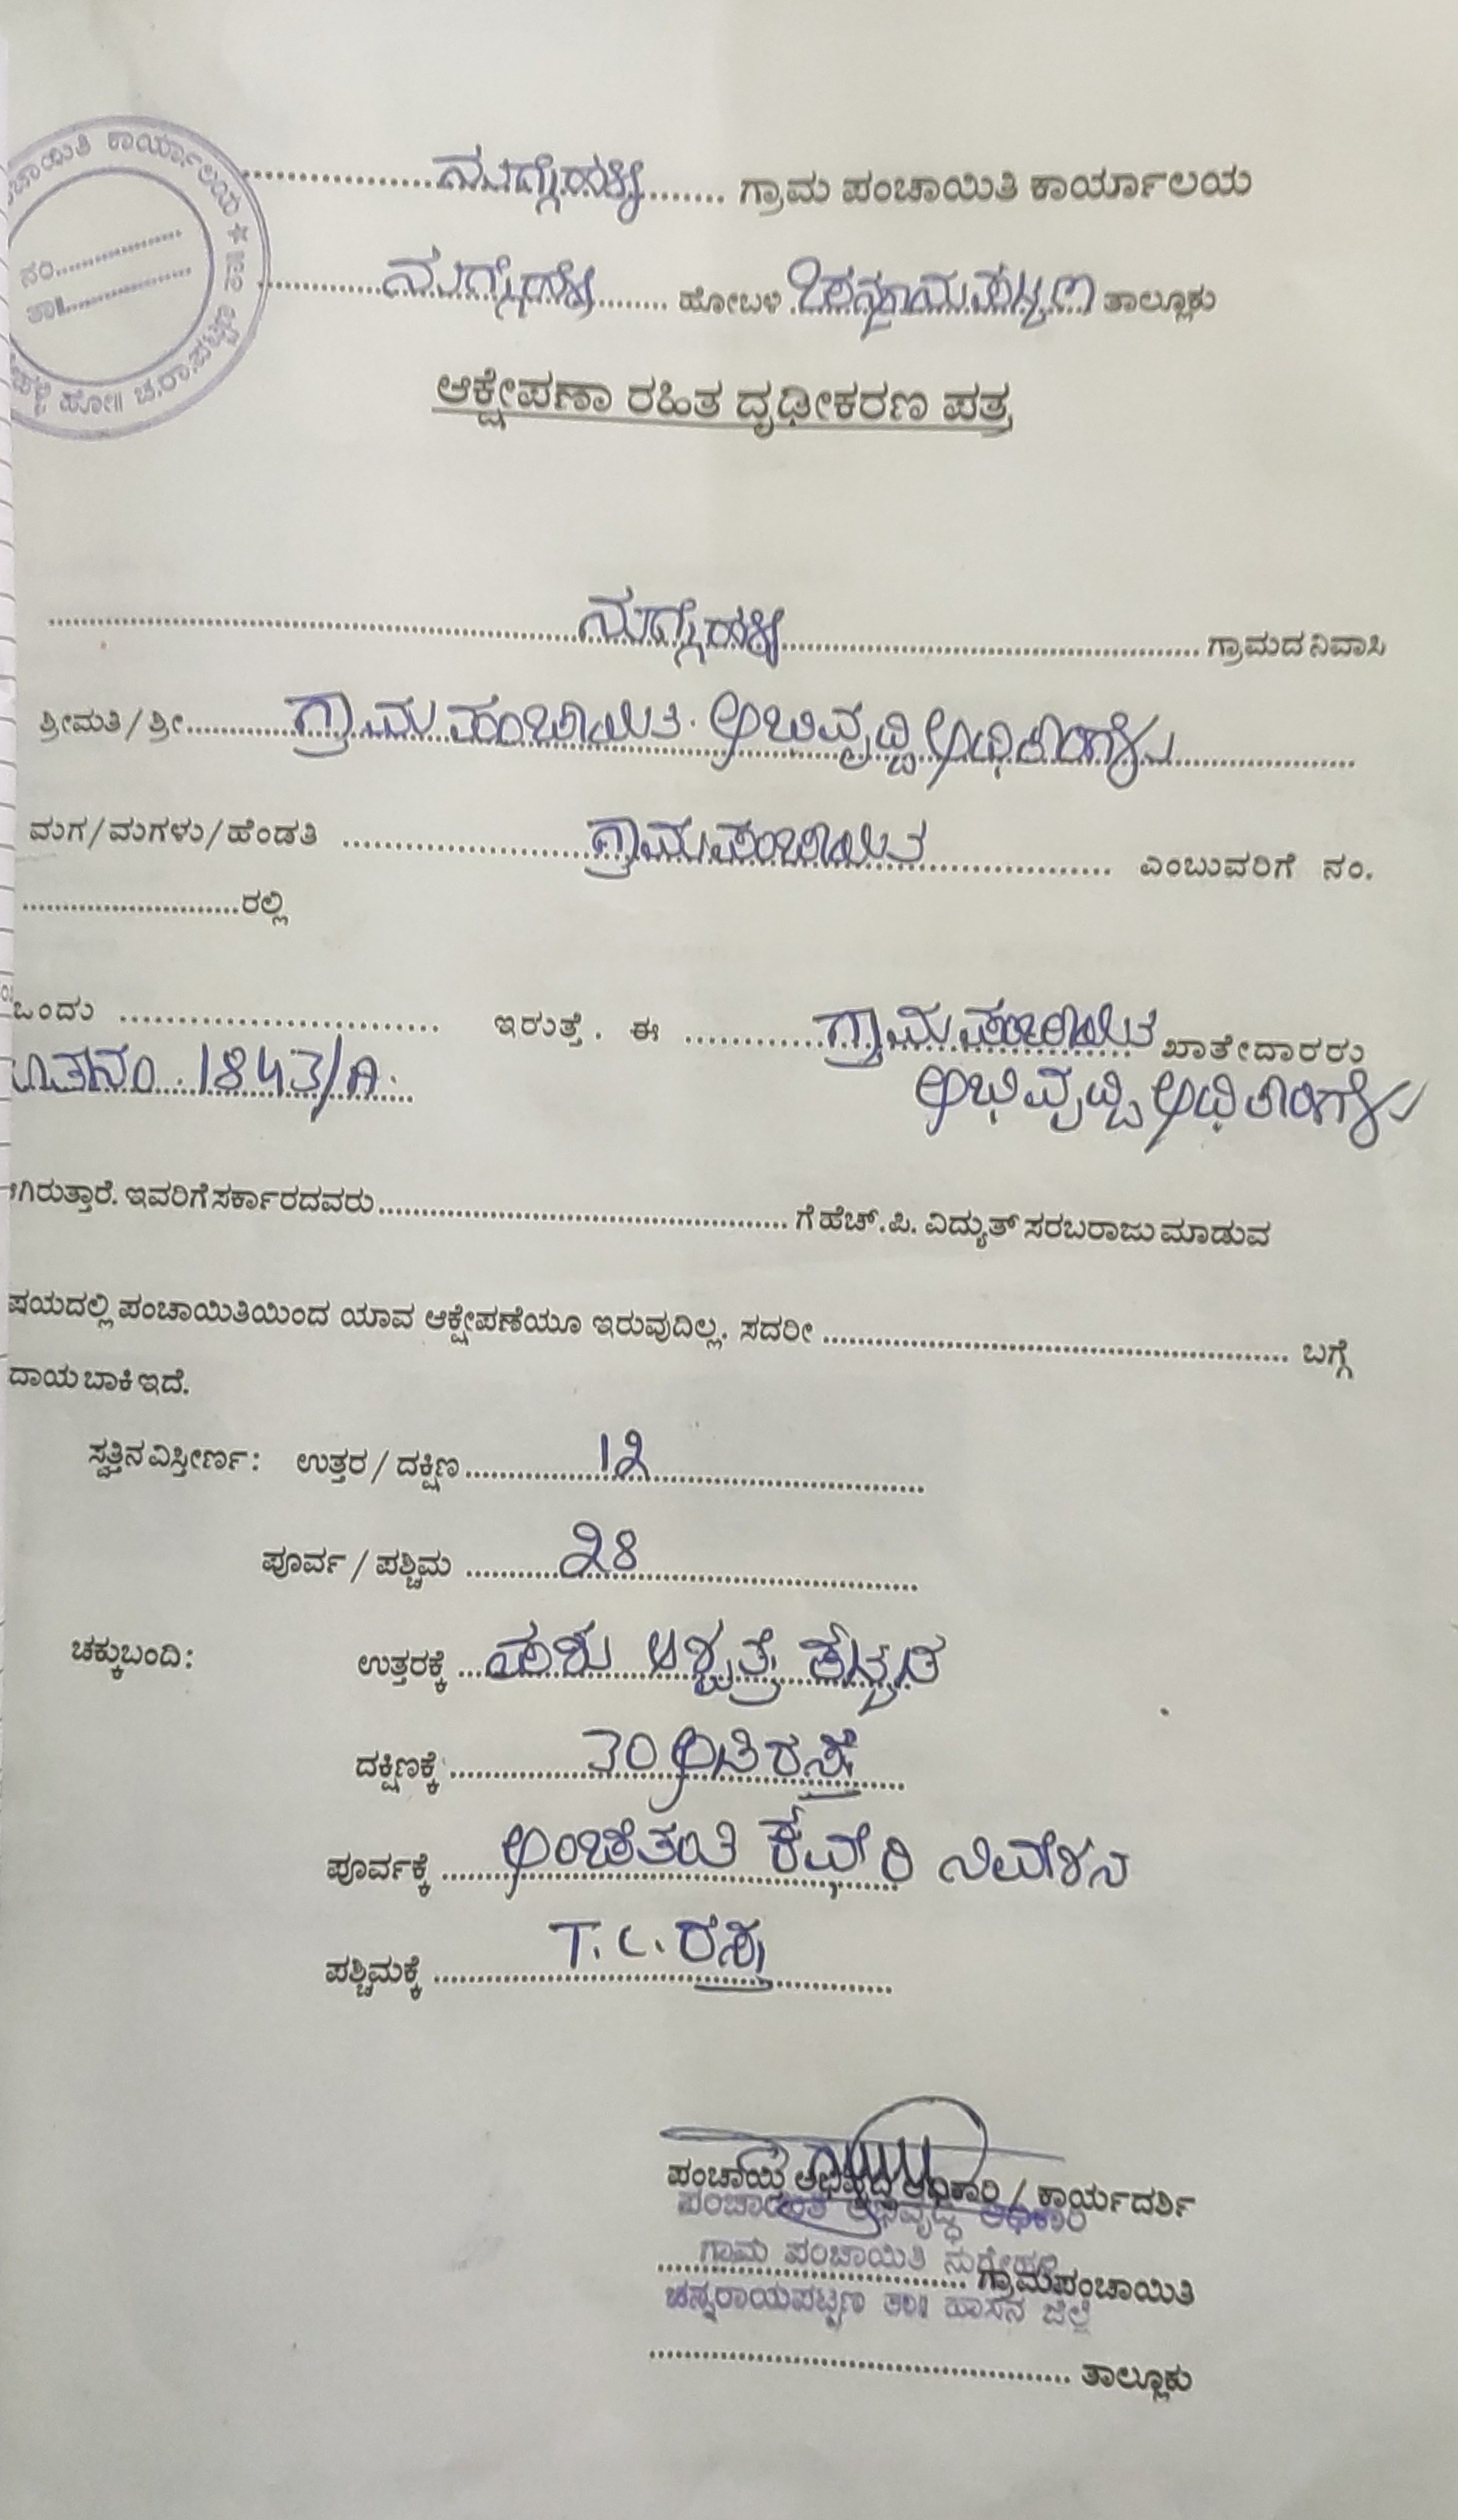 ಚಾಯಿತಿ ಕಾರ್ಯಾಲಯ ★
ನಂ....................
ತಾ॥....................
ಹೋ॥ ಚ.ರಾ.ಪಟ್ಟಣ
..................ನುಗ್ಗೇಹಳ್ಳಿ....... ಗ್ರಾಮ ಪಂಚಾಯಿತಿ ಕಾರ್ಯಾಲಯ
............ನುಗ್ಗೇಹಳ್ಳಿ....... ಹೋಬಳಿ ಚನ್ನರಾಯಪಟ್ಟಣ ತಾಲ್ಲೂಕು
ಆಕ್ಷೇಪಣಾ ರಹಿತ ದೃಢೀಕರಣ ಪತ್ರ
....................ನುಗ್ಗೇಹಳ್ಳಿ.................... ಗ್ರಾಮದ ನಿವಾಸಿ
ಶ್ರೀಮತಿ / ಶ್ರೀ............ಗ್ರಾಮ ಪಂಚಾಯಿತಿ. ಅಭಿವೃದ್ಧಿ ಅಧಿಕಾರಿಗಳು....................
ಮಗ/ಮಗಳು/ಹೆಂಡತಿ ....................ಗ್ರಾಮಪಂಚಾಯಿತಿ.................... ಎಂಬುವರಿಗೆ ನಂ.
..........................ರಲ್ಲಿ
ಒಂದು .............................. ಇರುತ್ತೆ. ಈ ............ಗ್ರಾಮ ಪಂಚಾಯಿತಿ ಖಾತೇದಾರರು
1843/A. ಅಭಿವೃದ್ಧಿ ಅಧಿಕಾರಿಗಳು
ಗಿರುತ್ತಾರೆ. ಇವರಿಗೆ ಸರ್ಕಾರದವರು.................................................. ಗೆ ಹೆಚ್.ಪಿ. ವಿದ್ಯುತ್ ಸರಬರಾಜು ಮಾಡುವ
ಷಯದಲ್ಲಿ ಪಂಚಾಯಿತಿಯಿಂದ ಯಾವ ಆಕ್ಷೇಪಣೆಯೂ ಇರುವುದಿಲ್ಲ. ಸದರೀ .................................................. ಬಗ್ಗೆ
ದಾಯ ಬಾಕಿ ಇದೆ.
ಸ್ವತ್ತಿನ ವಿಸ್ತೀರ್ಣ : ಉತ್ತರ / ದಕ್ಷಿಣ..............12..............................
ಪೂರ್ವ / ಪಶ್ಚಿಮ ............28..............................
ಚಕ್ಕುಬಂದಿ : ಉತ್ತರಕ್ಕೆ ...ಪಶು ಆಸ್ಪತ್ರೆ ಕಟ್ಟಡ
ದಕ್ಷಿಣಕ್ಕೆ ..............30 ಅಡಿ ರಸ್ತೆ
ಪೂರ್ವಕ್ಕೆ ......ಅಂಚೆತಂತಿ ಕಛೇರಿ ನಿವೇಶನ
ಪಶ್ಚಿಮಕ್ಕೆ ............T.C. ರಸ್ತೆ............
ಪಂಚಾಯ್ತಿ ಅಭಿವೃದ್ಧಿ ಅಧಿಕಾರಿ / ಕಾರ್ಯದರ್ಶಿ
ಪಂಚಾಯಿತಿ ಅಭಿವೃದ್ಧಿ ಅಧಿಕಾರಿ
ಗ್ರಾಮ ಪಂಚಾಯಿತಿ ನುಗ್ಗೇಹಳ್ಳಿ
........................................ ಗ್ರಾಮಪಂಚಾಯಿತಿ
ಚನ್ನರಾಯಪಟ್ಟಣ ತಾ॥ ಹಾಸನ ಜಿಲ್ಲೆ
.................................................. ತಾಲ್ಲೂಕು